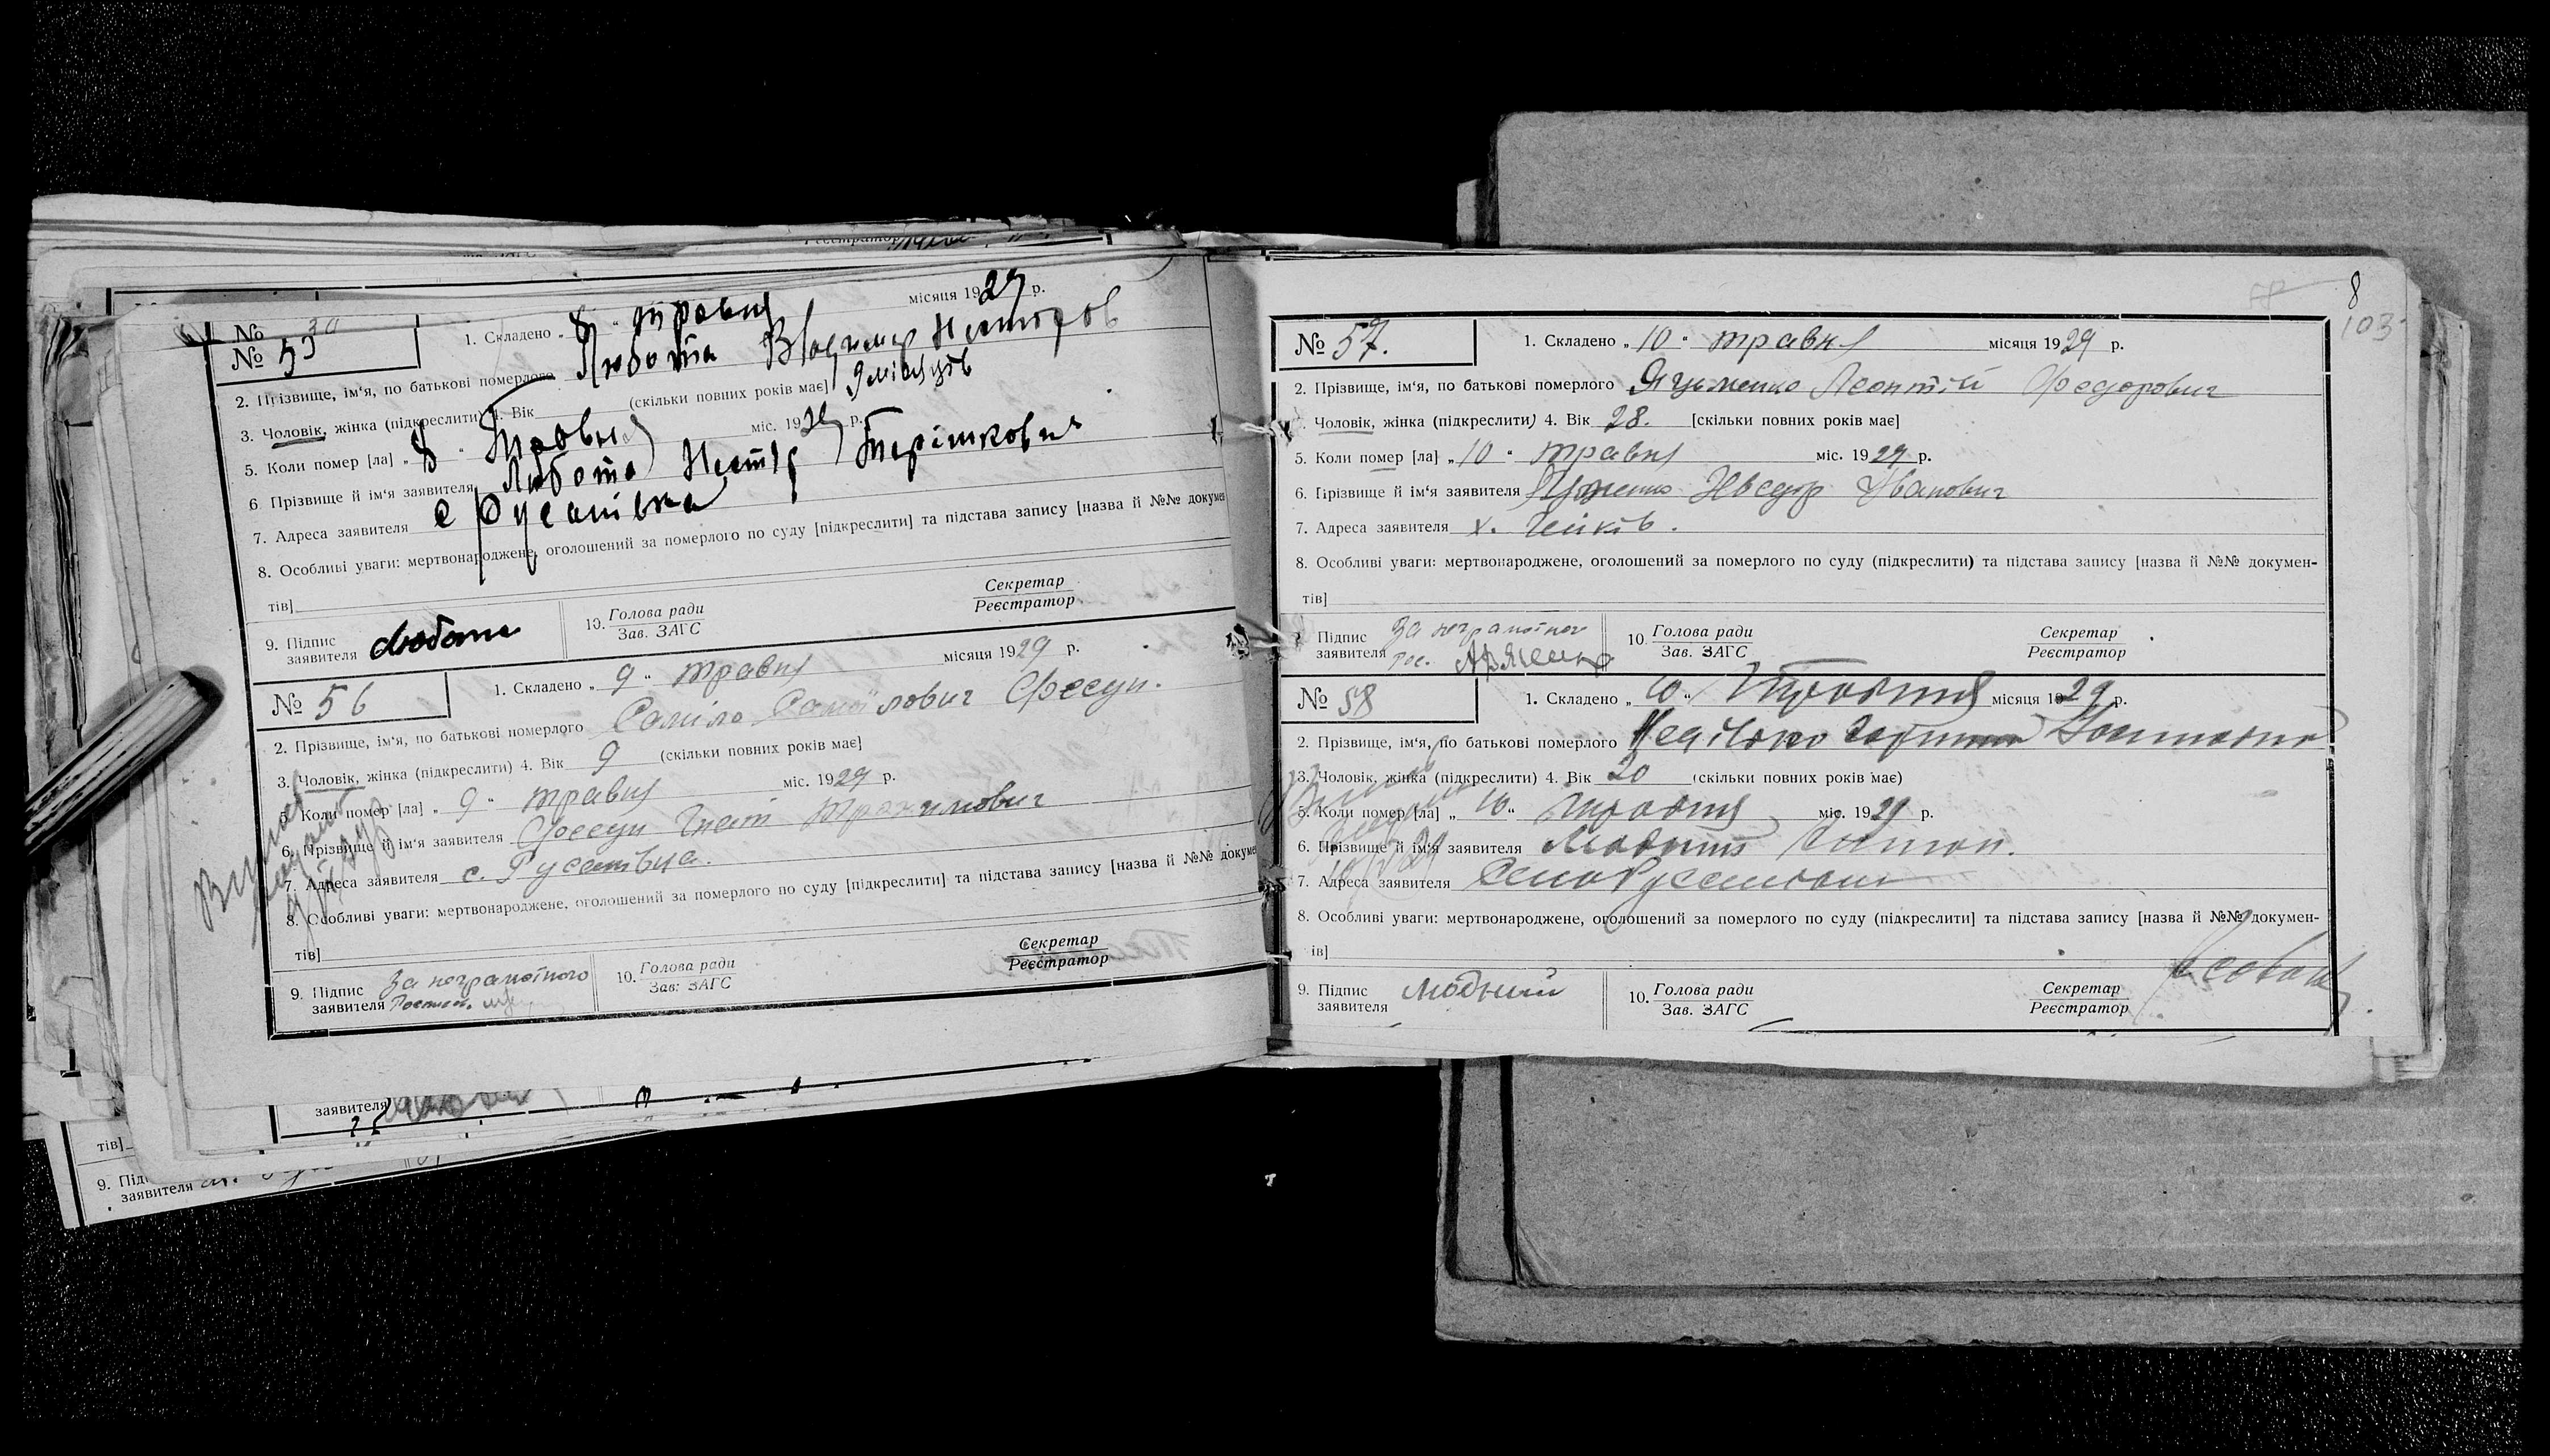 № 55
1. Складено „ 8 “ травня місяця 1929 р.
2. Прізвище, ім‘я, по батькові померлого Любота Владимер Несторов
3. Чоловік, жінка (підкреслити) 4. Вік (скільки повних років має) 9 місяців
5. Коли помер [ла] „ 8 “ Травня міс. 1929 р.
6. Прізвище й ім‘я заявителя Любота Нестір Терішкович
7. Адреса заявителя с Русанівка
8. Особливі уваги: мертвонароджене, оголошений за померлого по суду [підкреслити] та підстава запису [назва й №№ докумен
тів]
9. Підпис заявителя Любота 10. Голова ради Зав. ЗАГС Секретар Реєстратор
№ 56
1. Складено „ 9 “ травня місяця 1929 р.
2. Прізвище, ім‘я, по батькові померлого Саміло Самійлович Фесун.
3. Чоловік, жінка (підкреслити) 4. Вік 9 (скільки повних років має]
5. Коли помер [ла] „ 9 “ травня міс. 1929 р.
6. Прізвище й ім‘я заявителя Фесун Гнат
7. Адреса заявителя с. Русанівка.
8. Особливі уваги: мертвонароджене, оголошений за померлого по суду [підкреслити] та підстава запису [назва й №№ докуме
тів]
9. Підпис заявителя За неграмотного 10. Голова ради Зав: ЗАГС Секретар Реєстратор
заявителя
тів]
9. Підп
заявителя
8
103
№ 57.
1. Складено „ 10 “ травня місяця 1929 р.
2. Прізвище, ім‘я, по батькові померлого Яцименко Леонтій Федорович
Чоловік, жінка (підкреслити) 4. Вік 28. [скільки повних років має]
5. Коли помер [ла] „ 10 “ травня міс. 1929 р.
6. Прізвище й ім‘я заявителя Іванович
7. Адреса заявителя х.
8. Особливі уваги: мертвонароджене, оголошений за померлого по суду (підкреслити) та підстава запису [назва й №№ докумен-
тів]
Підпис заявителя За неграмотного Рос. 10. Голова ради Зав. ЗАГС Секретар Реєстратор
№ 58
1. Складено „ 10 “ Травня місяця 1929 р.
2. Прізвище, ім‘я, по батькові померлого
3. Чоловік, жінка (підкреслити) 4. Вік 20 (скільки повних років має)
5. Коли помер [ла] „ 10 “ Травня міс. 1929 р.
6. Прізвище й ім‘я заявителя
7. Адреса заявителя Село Русанівка
8. Особливі уваги: мертвонароджене, оголошений за померлого по суду (підкреслити] та підстава запису [назва й №№ докумен-
ів]
9. Підпис заявителя Модний 10. Голова ради Зав. ЗАГС Секретар Реєстратор